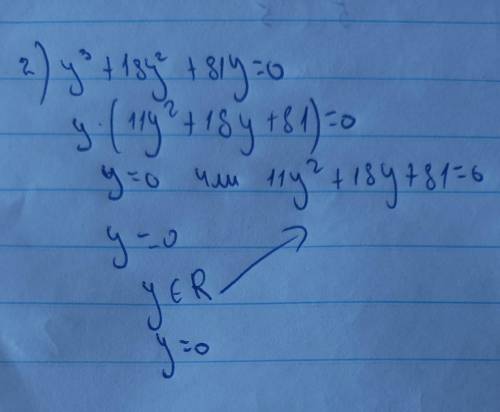 2) y³ + 18y² + 81y = 0
y · (11y² + 18y + 81) = 0
y = 0 или 11y² + 18y + 81 = 0
y = 0
y ∈ R
y = 0